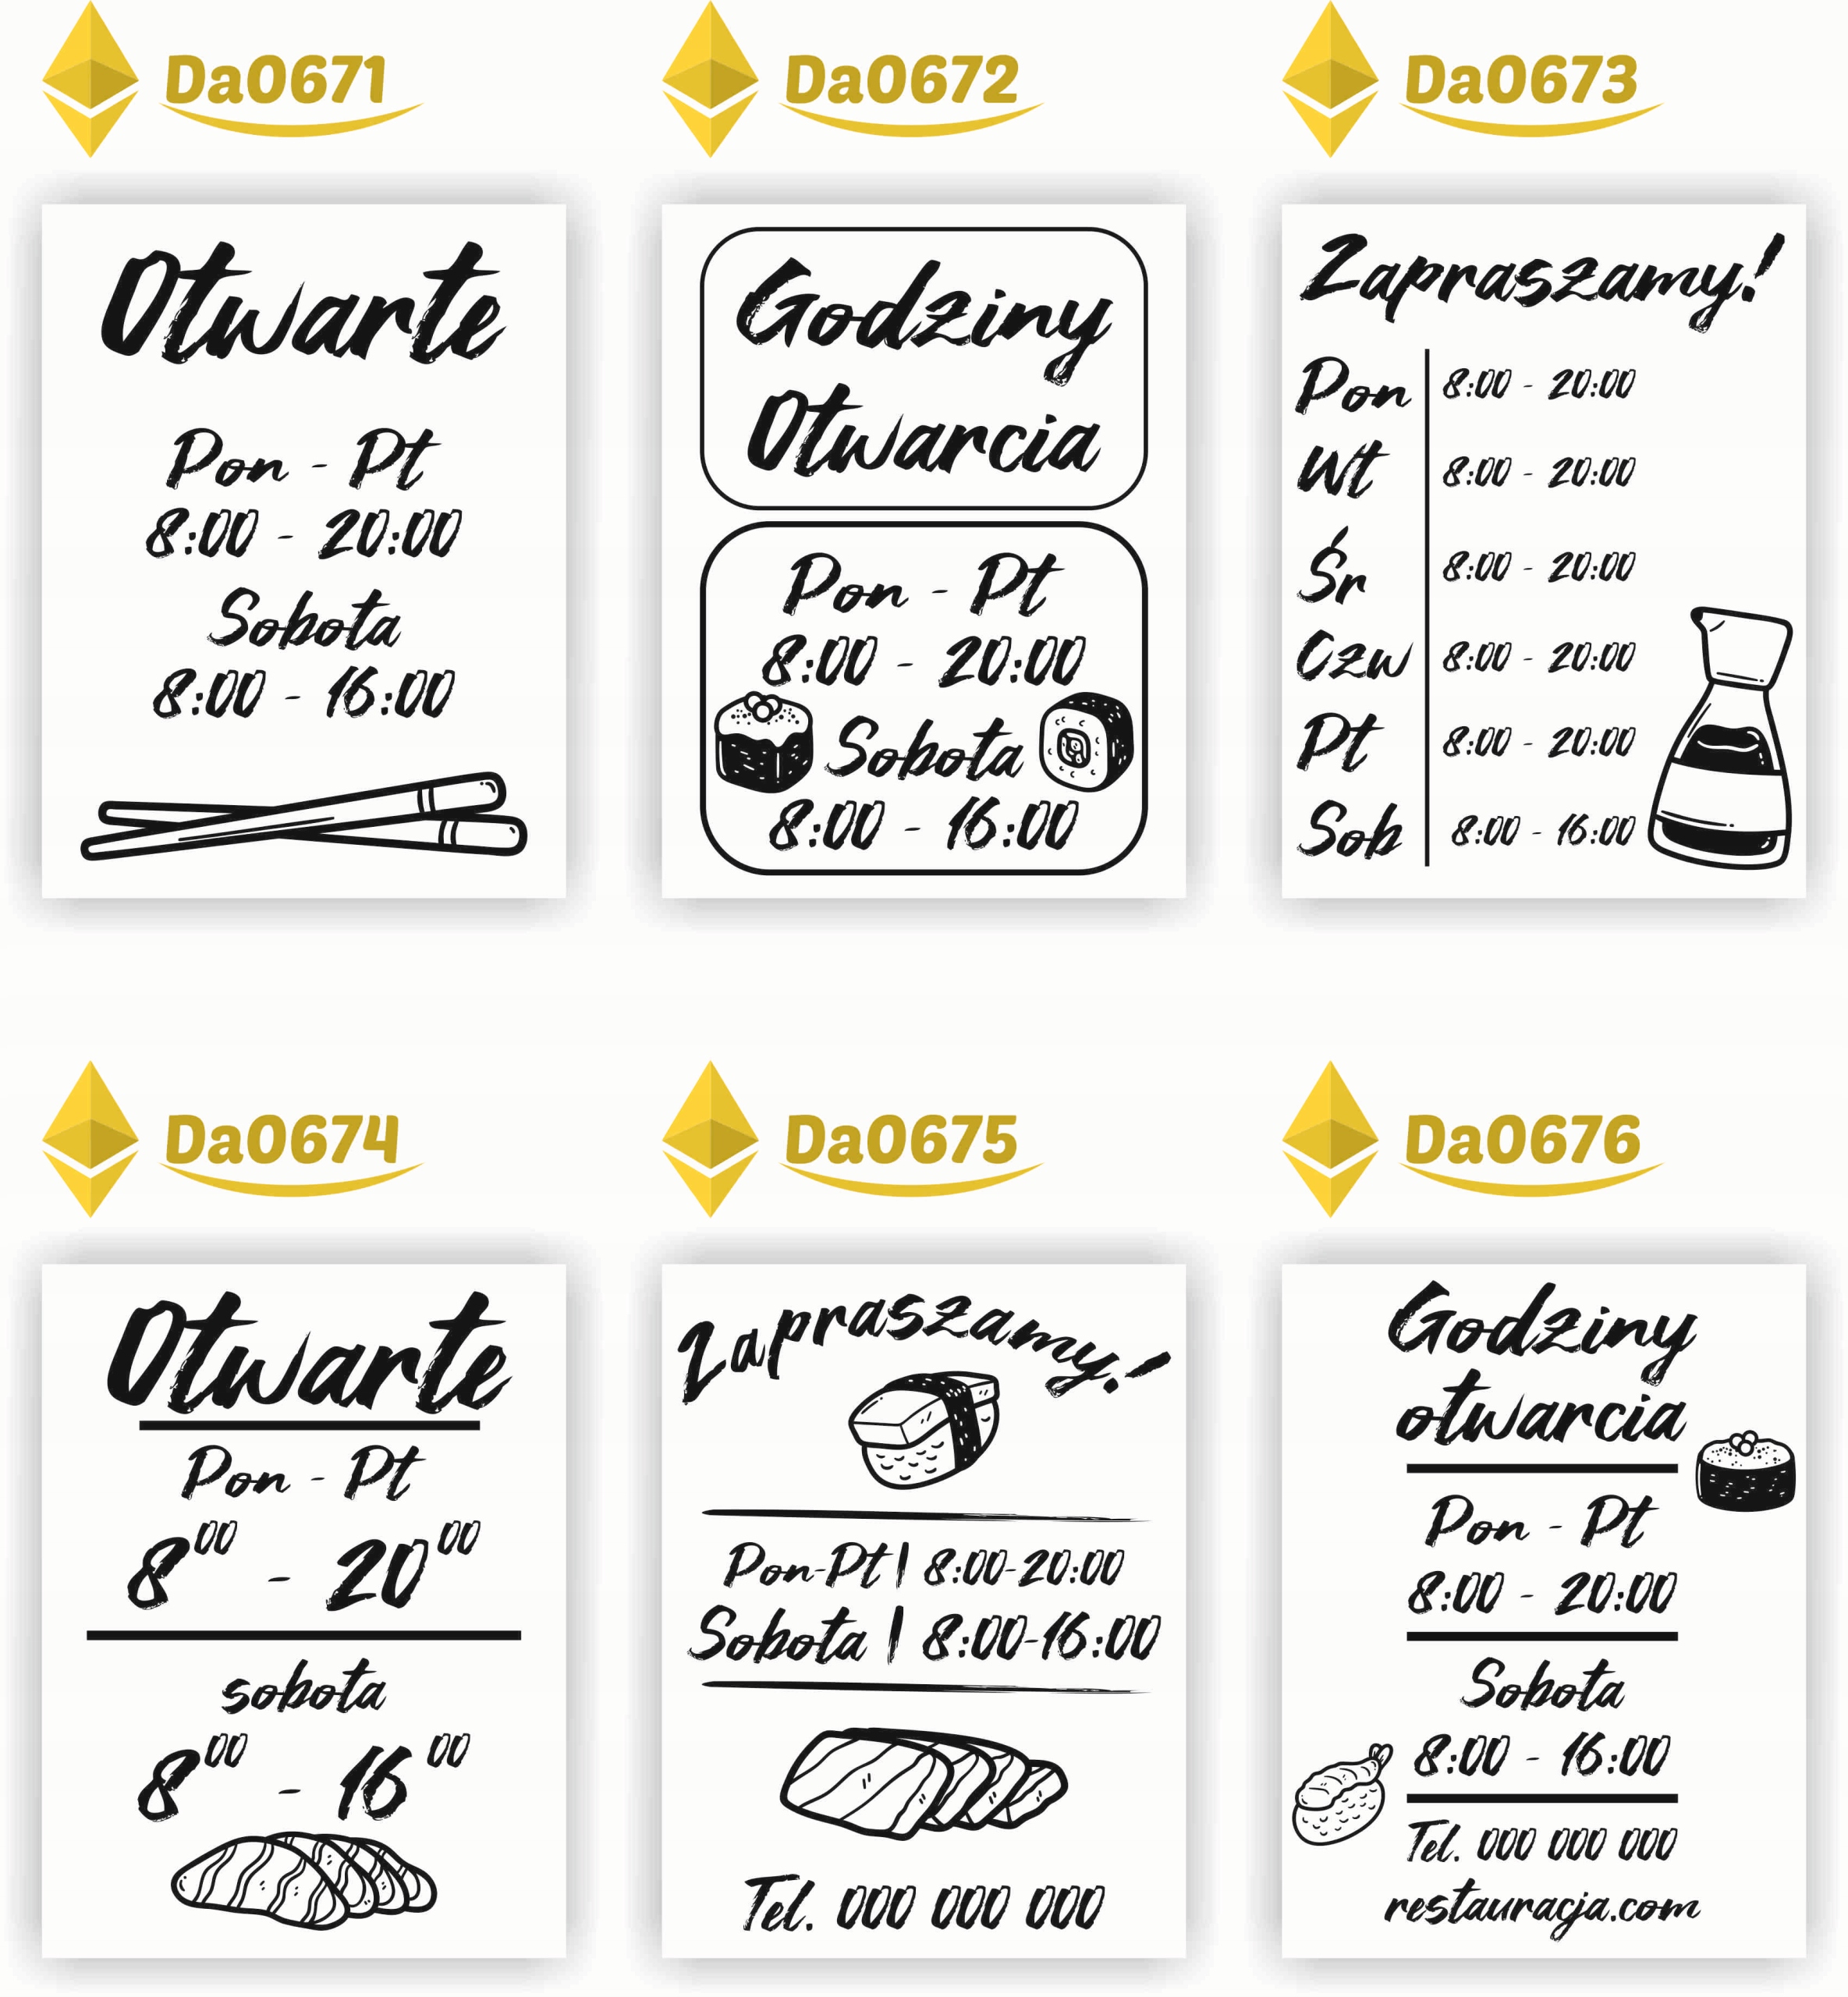 Da0671
Otwarte
Pon - Pt
8:00 - 20:00
Sobota
8:00 - 16:00
Da0672
Godziny
Otwarcia
Pon - Pt
8:00 - 20:00
Sobota
8:00 - 16:00
Da0673
Zapraszamy!
Pon 8:00 - 20:00
Wt 8:00 - 20:00
Śr 8:00 - 20:00
Czw 8:00 - 20:00
Pt 8:00 - 20:00
Sob 8:00 - 16:00
Da0674
Otwarte
Pon - Pt
8⁰⁰ - 20⁰⁰
sobota
8⁰⁰ - 16⁰⁰
Da0675
Zapraszamy!
Pon-Pt | 8:00-20:00
Sobota | 8:00-16:00
Tel. 000 000 000
Da0676
Godziny
otwarcia
Pon - Pt
8:00 - 20:00
Sobota
8:00 - 16:00
Tel. 000 000 000
restauracja.com